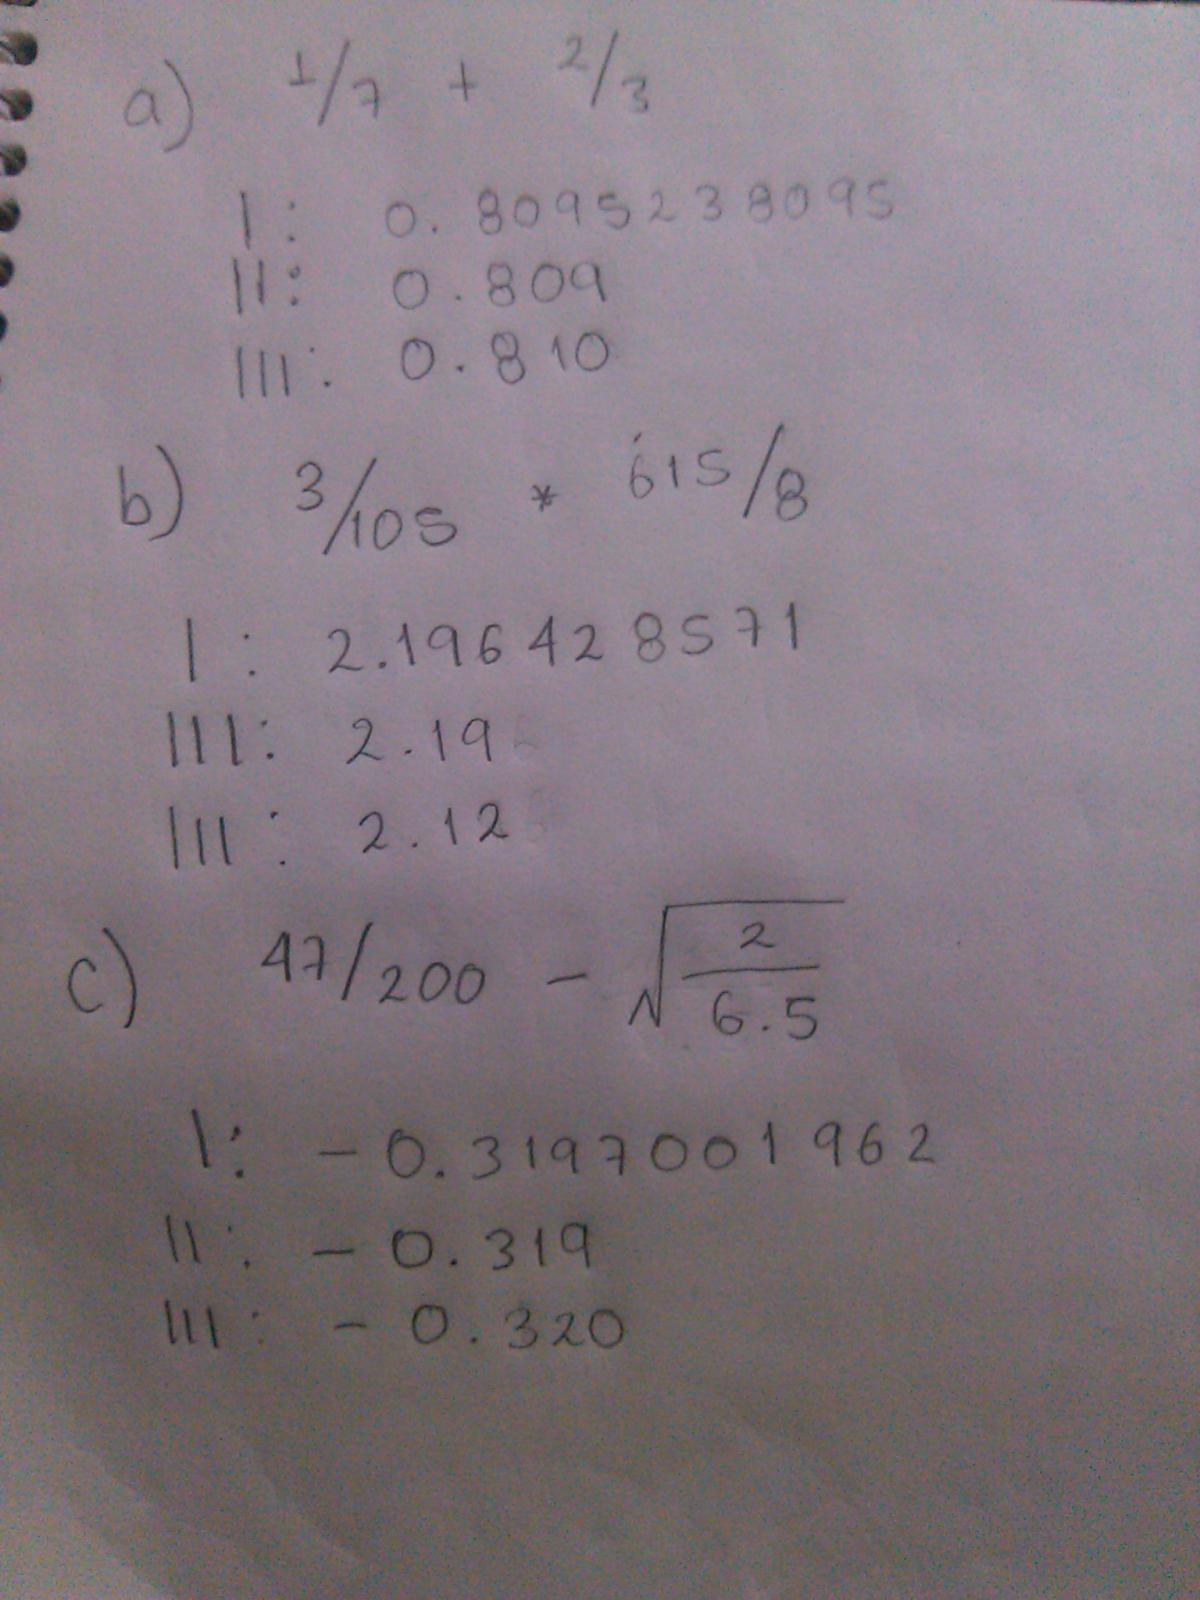 a) 1/7 + 2/3
I: 0.8095238095
II: 0.809
III: 0.810
b) 3/105 * 615/8
I: 2.196428571
III: 2.19
III: 2.12
c) 47/200 - √(2/6.5)
I: -0.3197001962
II: -0.319
III: -0.320